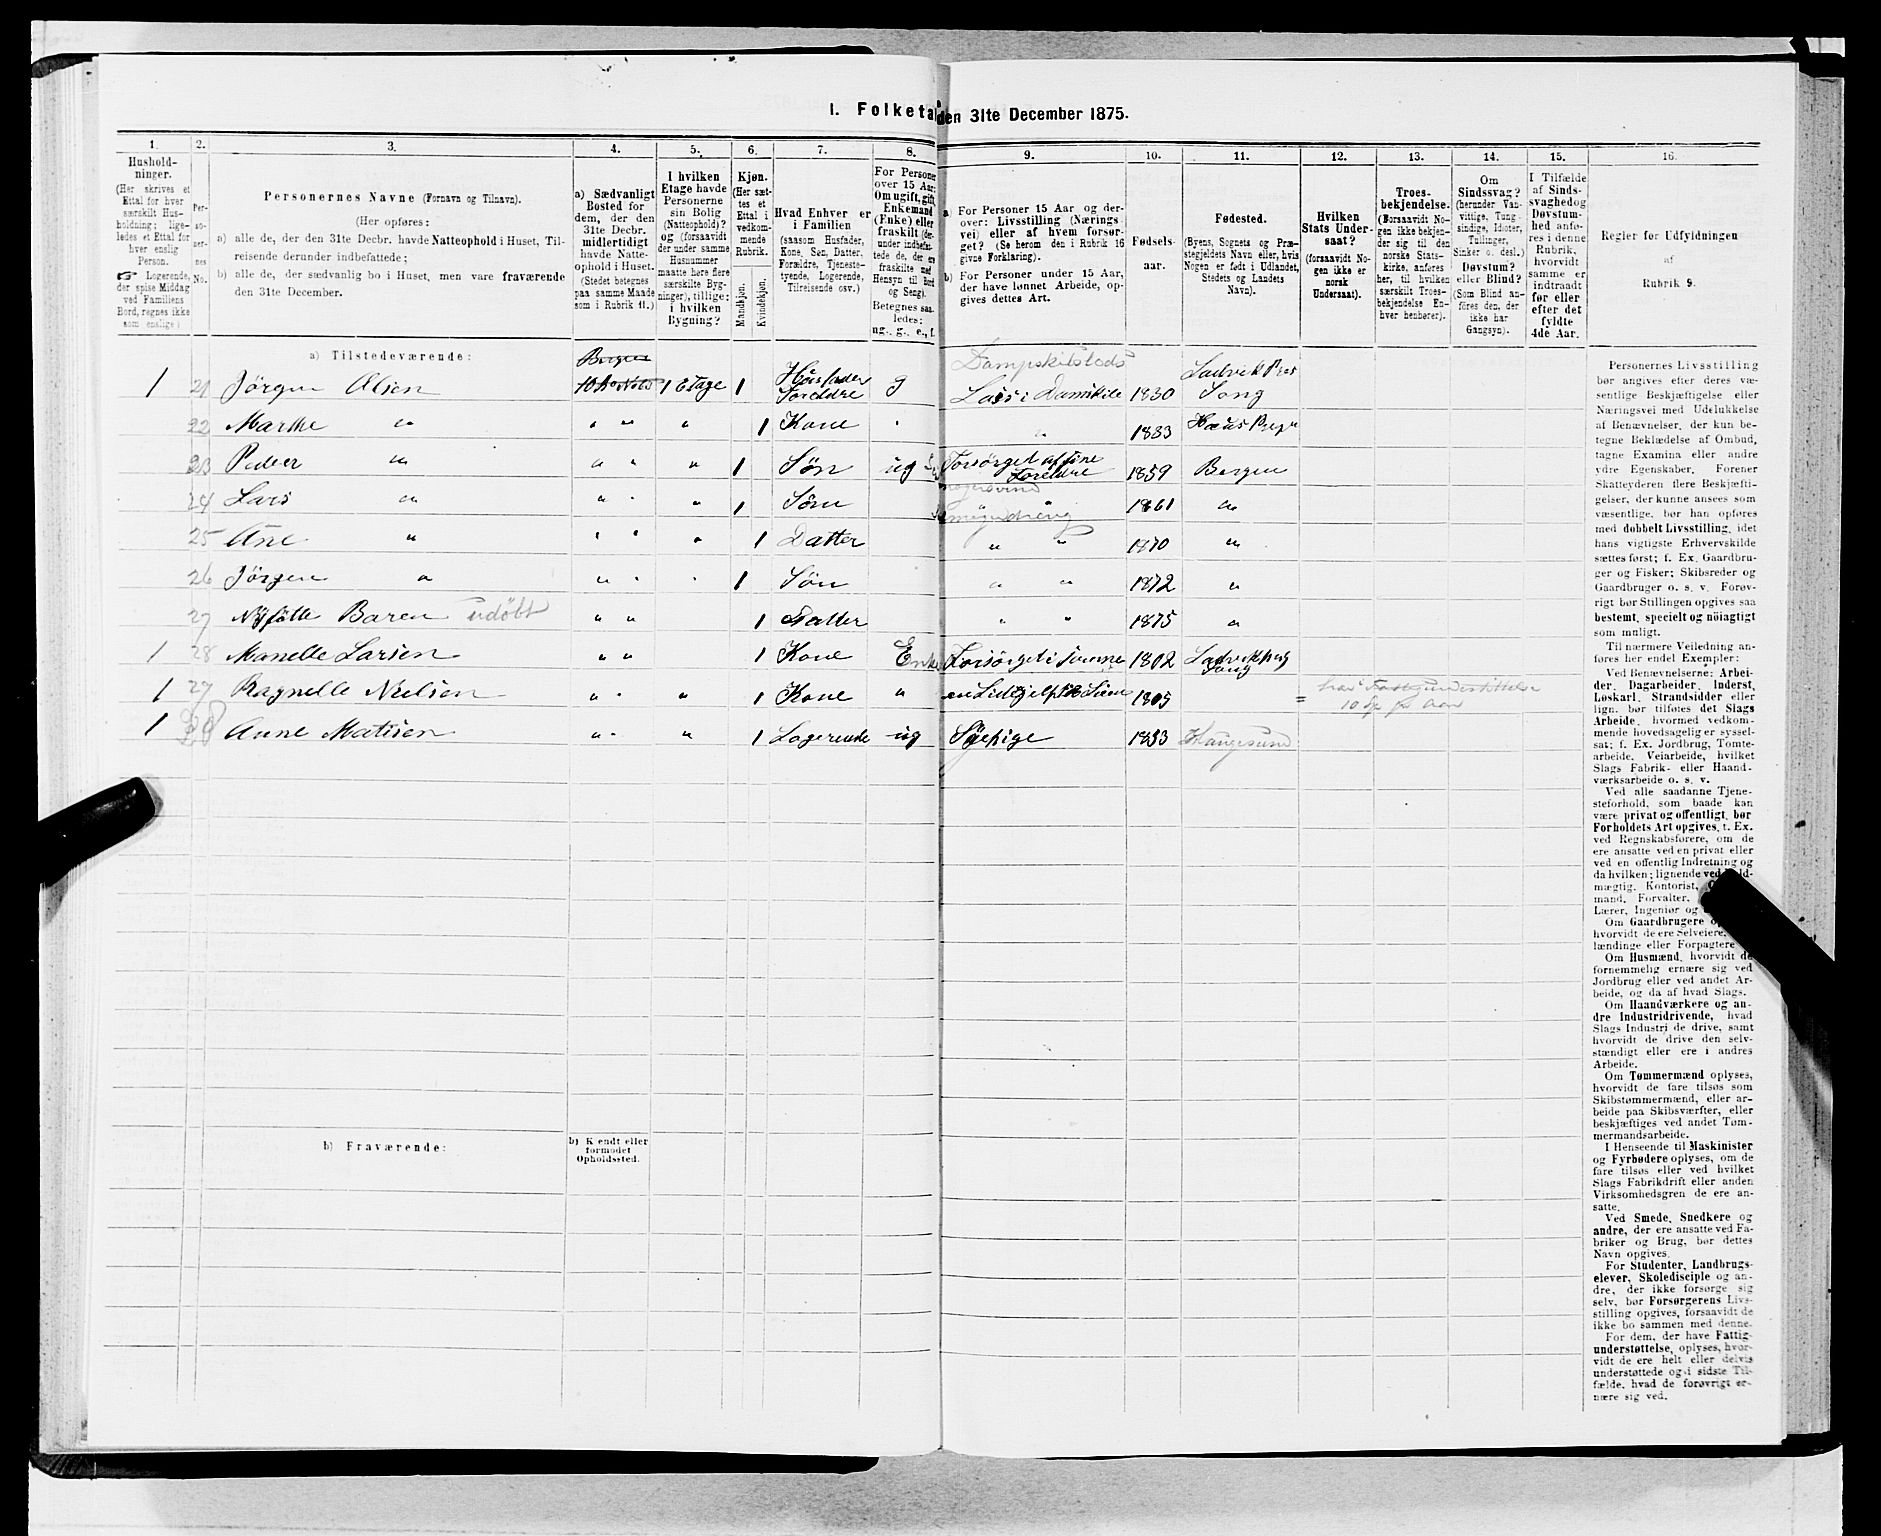 1. Folketal den 31te December 1875.
1. 2. 3. 4. 5. 6. 7. 8. 9. 10. 11. 12. 13. 14. 15. 16.
Hushold-
ninger.
(Her skrives et
Ettal for hver
særskilt Hus-
holdning; lige-
ledes et Ettal for
hver enslig
Person.
Logerende,
der spise Middag
ved Familiens
Bord, regnes ikke
som enslige)
Per-
so-
ner-
nes
No.
Personernes Navne (Fornavn og Tilnavn).
(Her opføres:
a) alle de, der den 31te Decbr. havde Natteophold i Huset, Til-
reisende derunder indbefattede;
b) alle de, der sædvanlig bo i Huset, men vare fraværende
den 31te December.
a) Sædvanligt
Bosted for
dem, der den
31te Decbr.
midlertidigt
havde Natte-
ophold i Huset.
(Stedet betegnes
paa samme Maade
som i Rubrik 11.)
I hvilken
Etage havde
Personerne
sin Bolig
(Natteophold)?
og (forsaavidt
der under samme
Husnummer
maatte høre flere
særskilte Byg-
ninger), tillige:
i hvilken
Bygning?
Kjøn.
(Her sæt-
tes et
Ettal i
vedkom-
mende
Rubrik.
Mandkjøn.
Kvindekjøn.
Hvad Enhver er
i Familien
(saasom Husfader,
Kone, Søn, Datter,
Forældre, Tjeneste-
tyende, Logerende,
Tilreisende osv.)
For Personer
over 15 Aar:
Om ugift, gift,
Enkemand
(Enke) eller
fraskilt (der-
under indbefat-
tede de, der ere
fraskilte med
Hensyn til Bord
og Seng).
Betegnes saa-
ledes:
ug., g., e., f.
a For Personer 15 Aar og der-
over: Livsstilling (Nærings-
vei) eller af hvem forsør-
get? (Se herom den i Rubrik 16
givne Forklaring).
b) For Personer under 15 Aar,
der have lønnet Arbeide, op-
gives dettes Art.
Fødsels-
aar.
Fødested.
(Byens, Sognets og Præ-
stegjeldets Navn eller, hvis
Nogen er født i Udlandet,
Stedets og Landets
Navn).
Hvilken
Stats Under-
saat?
(forsaavidt No-
gen ikke er
norsk
Undersaat).
Troes-
bekjendelse.
(Forsaavidt No-
gen ikke bekjen-
der sig til den
norske Stats-
kirke, anføres
her, til hvilken
særskilt Troes-
bekjendelse En-
hver henhører).
Om
Sindssvag?
(herunder Van-
vittige, Tung-
sindige, Idioter,
Tullinger,
Sinker o. desl.)
Døvstum?
eller Blind?
(Som Blind an-
føres den, der
ikke har
Gangsyn).
I Tilfælde
af Sinds-
svaghed og
Døvstum-
hed anfø-
res i denne
Rubrik,
hvorvidt
samme er
indtraadt
før eller
efter det
fyldte
4de Aar.
Regler for Udfyldningen
af
Rubrik 9.
a) Tilstedeværende:
Bergen
Dampskibslods
1 21 Jörgen Olsen 1 Etage 1 Huusfader Foreldre g Lods i Damskibe 1830 Ladvik Præs Song
22 Marthe " " " " 1 Kone " " 1833 Haus Præg
23 Peder " " " " 1 Sön ug Forsörget af sine Foreldre 1859 Bergen
24 Lars " " " " 1 Sön " 1861 "
25 Ane " " " " 1 Datter " " 1870 "
26 Jörgen " " " " 1 Sön " " 1872 "
27 Nyfötte Baren udöbt " " 1 Datter " " 1875 "
1 28 Manelle Larsen " " 1 Kone Enke Forsörget i 1802 Ladvik Song
1 27 Ragnelle Nielsen " " " 1 Kone " 1805 = har Fattigunderstittelse
1 28 Anne Matisen " " " 1 Logerende ug Sypige 1833 Haugesund
b) Fraværende:
b) Kjendt eller
formodet
Opholdssted.
Personernes Livsstilling
bør angives efter deres væ-
sentlige Beskjæftigelse eller
Næringsvei med Udelukkelse
af Benævnelser, der kun be-
tegne Beklædelse af Ombud,
tagne Examina eller andre
ydre Egenskaber. Forener
Skatteyderen flere Beskjæfti-
gelser, der kunne ansees som
væsentlige, bør han opføres
med dobbelt Livsstilling, idet
hans vigtigste Erhvervskilde
sættes først; f. Ex. Gaardbru-
ger og Fisker; Skibsreder og
Gaardbruger o. s. v. Forøv-
rigt bør Stillingen opgives saa
bestemt, specielt og nöiagtigt
som muligt.
Til nærmere Veiledning an-
føres her endel Exempler:
Ved Benævnelserne: Arbei-
der, Dagarbeider, Inderst,
Løskarl, Strandsidder eller
lign. bør tilføies det Slags
Arbeide, hvormed vedkom-
mende hovedsagelig er syssel-
sat; f. Ex. Jordbrug, Tomte-
arbeide, Veiarbeide, hvilket
Slags Fabrik- eller Haand-
værksarbeide o. s. v.
Ved alle saadanne Tjene-
steforhold, som baade kan
være privat og offentligt, bør
Forholdets Art opgives, t. Ex.
ved Regnskabsførere, om de
ere ansatte ved en privat eller
ved en offentlig Indretning og
da hvilken; lignende ved Fuld-
mægtig, Kontorist,
mand, Forvalter,
Lærer, Ingeniør og
Om Gaardbrugere
hvorvidt de ere Selveiere,
lændinge eller Forpagtere
Om Husmænd, hvorvidt de
fornemmelig ernære sig ved
Jordbrug eller ved andet Ar-
beide, og da af hvad Slags.
Om Haandværkere og an-
dre Industridrivende, hvad
Slags Industri de drive, samt
hvorvidt de drive den selv-
stændigt eller ere i andres
Arbeide.
Om Tømmermænd oplyses,
hvorvidt de fare tilsøs som
Skibstømmermænd, eller ar-
beide paa Skibsværfter, eller
beskjæftiges ved andet Tøm-
mermandsarbeide.
I Henseende til Maskinister
og Fyrbødere oplyses, om de
fare tilsøs eller ved hvilket
Slags Fabrikdrift eller anden
Virksomhedsgren de ere an-
satte.
Ved Smede, Snedkere og
andre, der ere ansatte ved Fa-
briker og Brug, bør dettes
Navn opgives.
For Studenter, Landbrugs-
elever, Skoledisciple og an-
dre, der ikke forsørge sig
selv, bør Forsørgerens Livs-
stilling opgives, forsaavidt de
ikke bo sammen med denne.
For dem, der have Fattig-
understøttelse, oplyses, hvor-
vidt de ere helt eller delvis
understøttede og i sidste Til-
fælde, hvad de forøvrigt er-
nære sig ved.